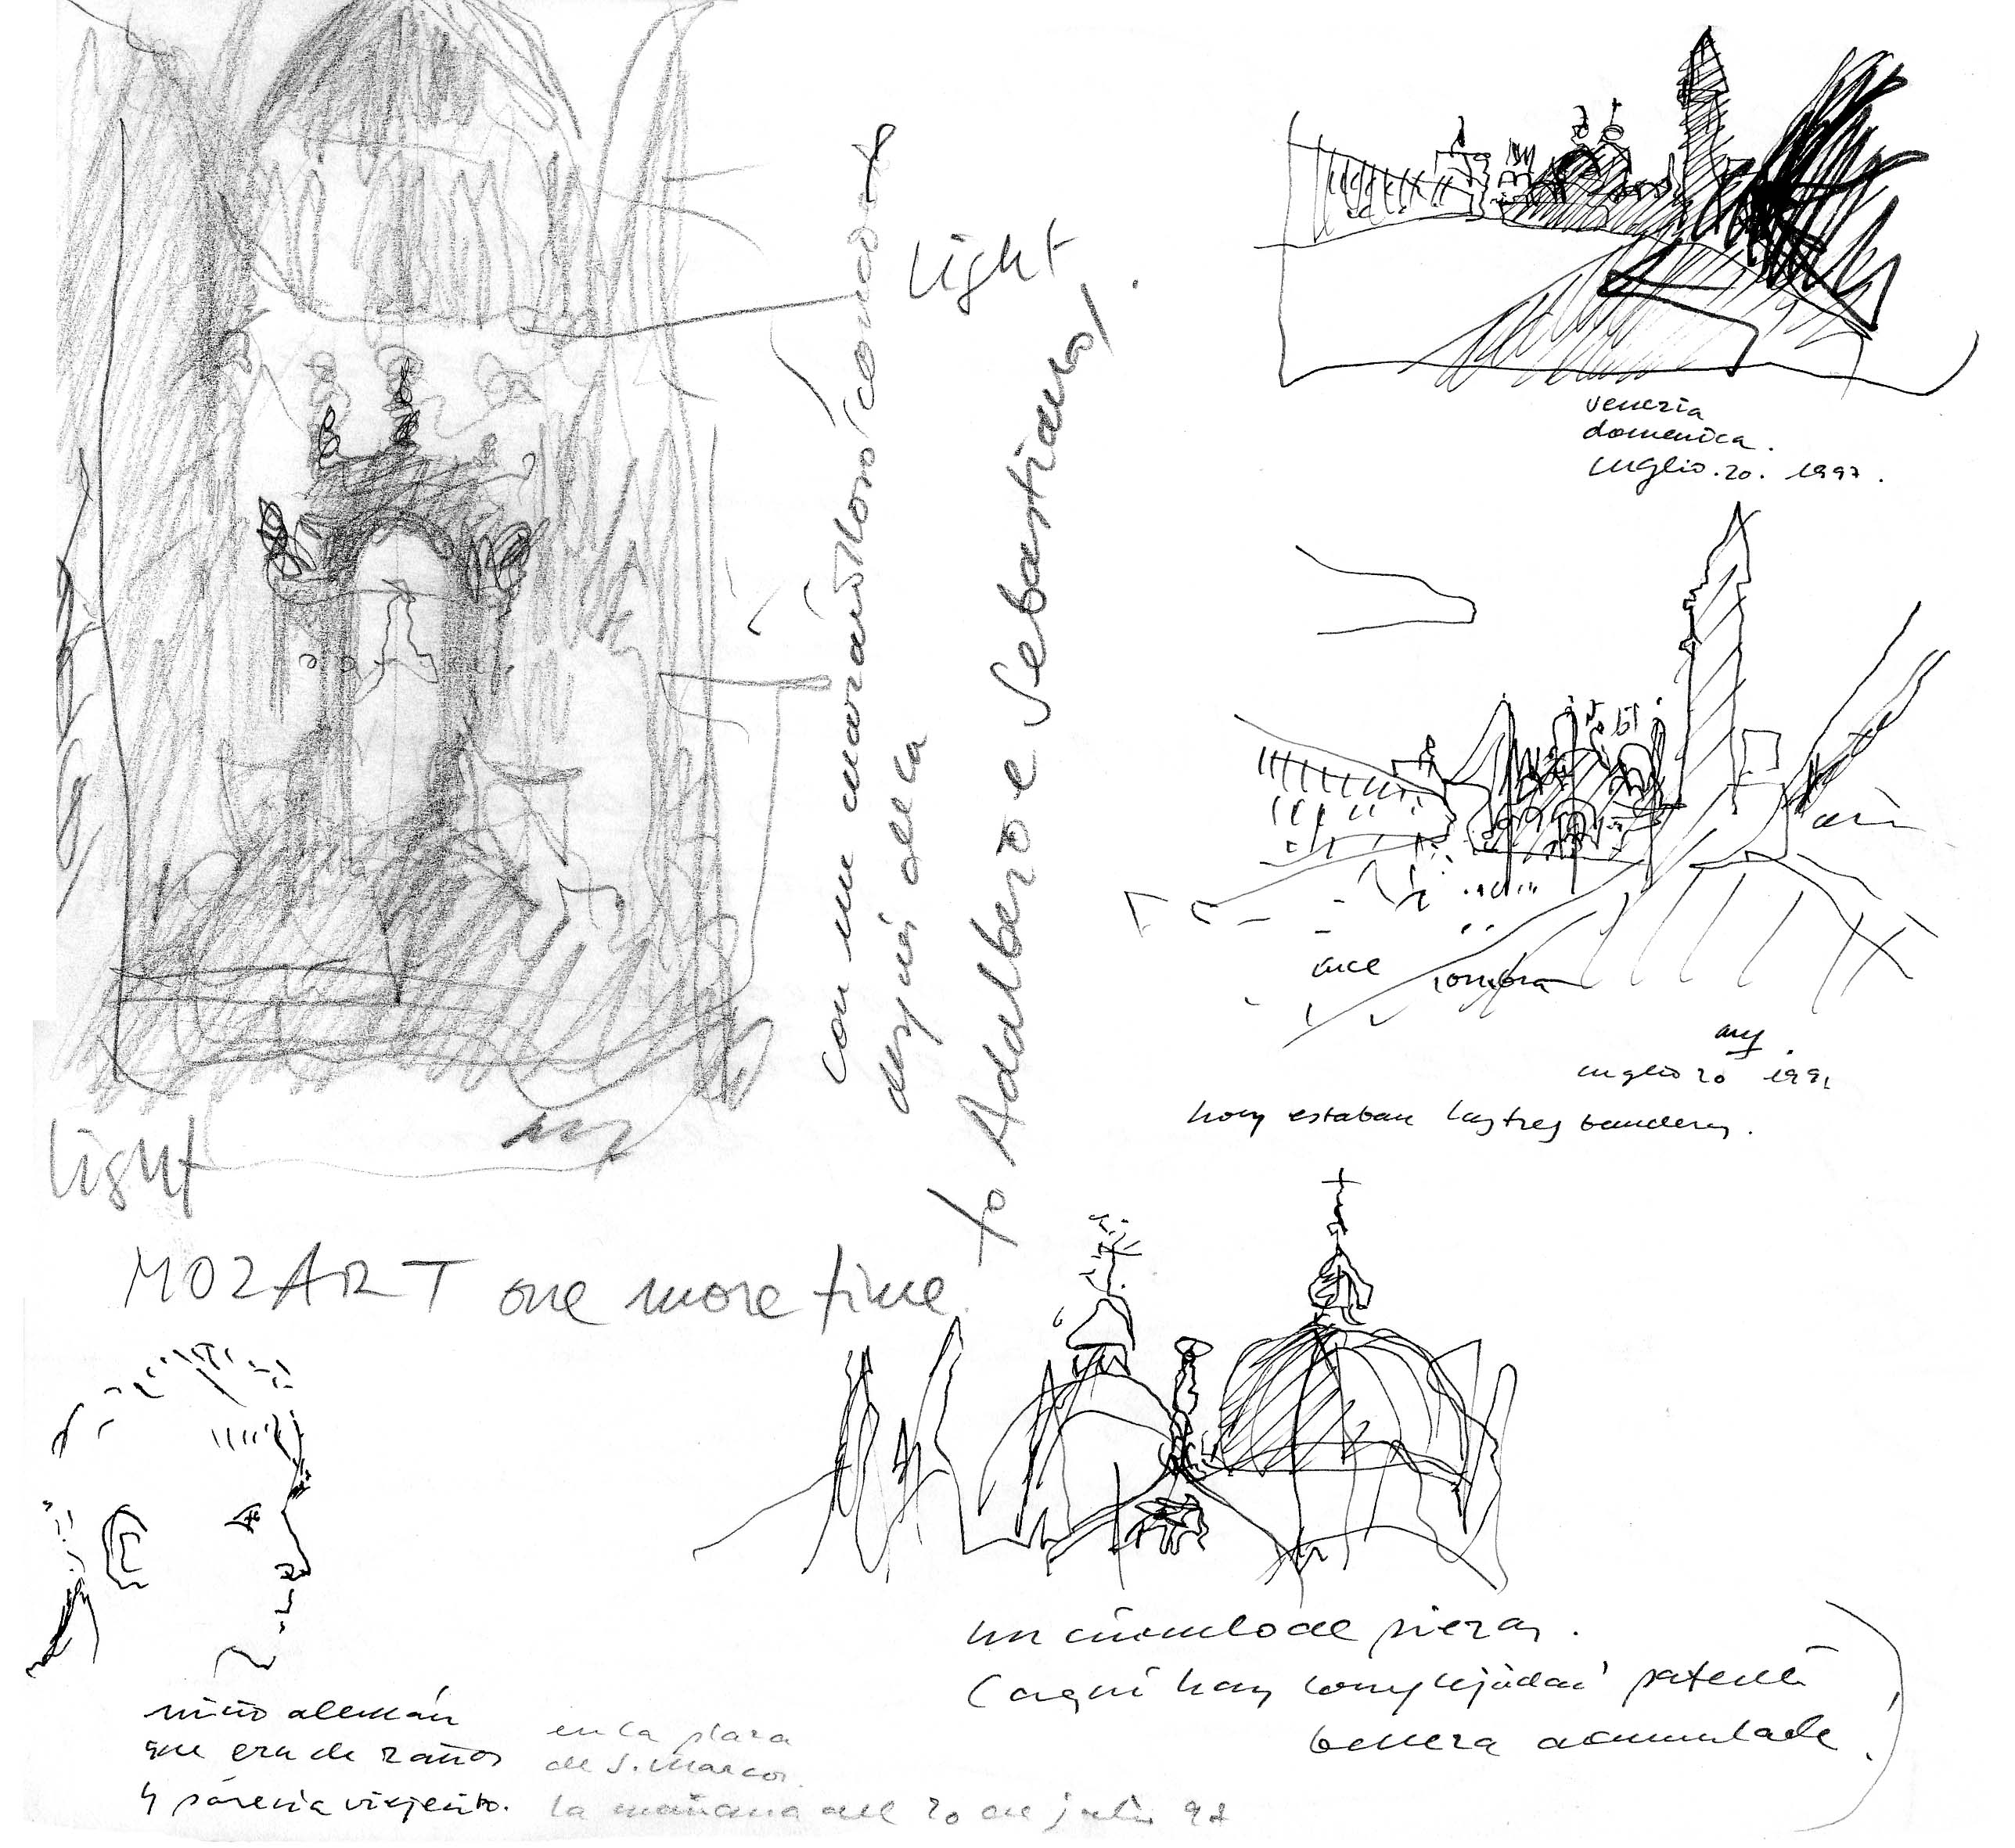 light
con un maravilloso
después de la
to Adalberto e Sebastiano!
light
MOZART one more time.
venezia
domenica.
luglio. 20. 1997.
luce sombra
luglio 20 1997
hoy estaban las tres banderas.
un cúmulo de piezas.
(aquí hay complejidad patente
belleza acumulada.)
niño alemán
que era de 2 años
y parecia viejecito.
en la plaza
de S. Marcos.
la mañana del 20 de julio 97